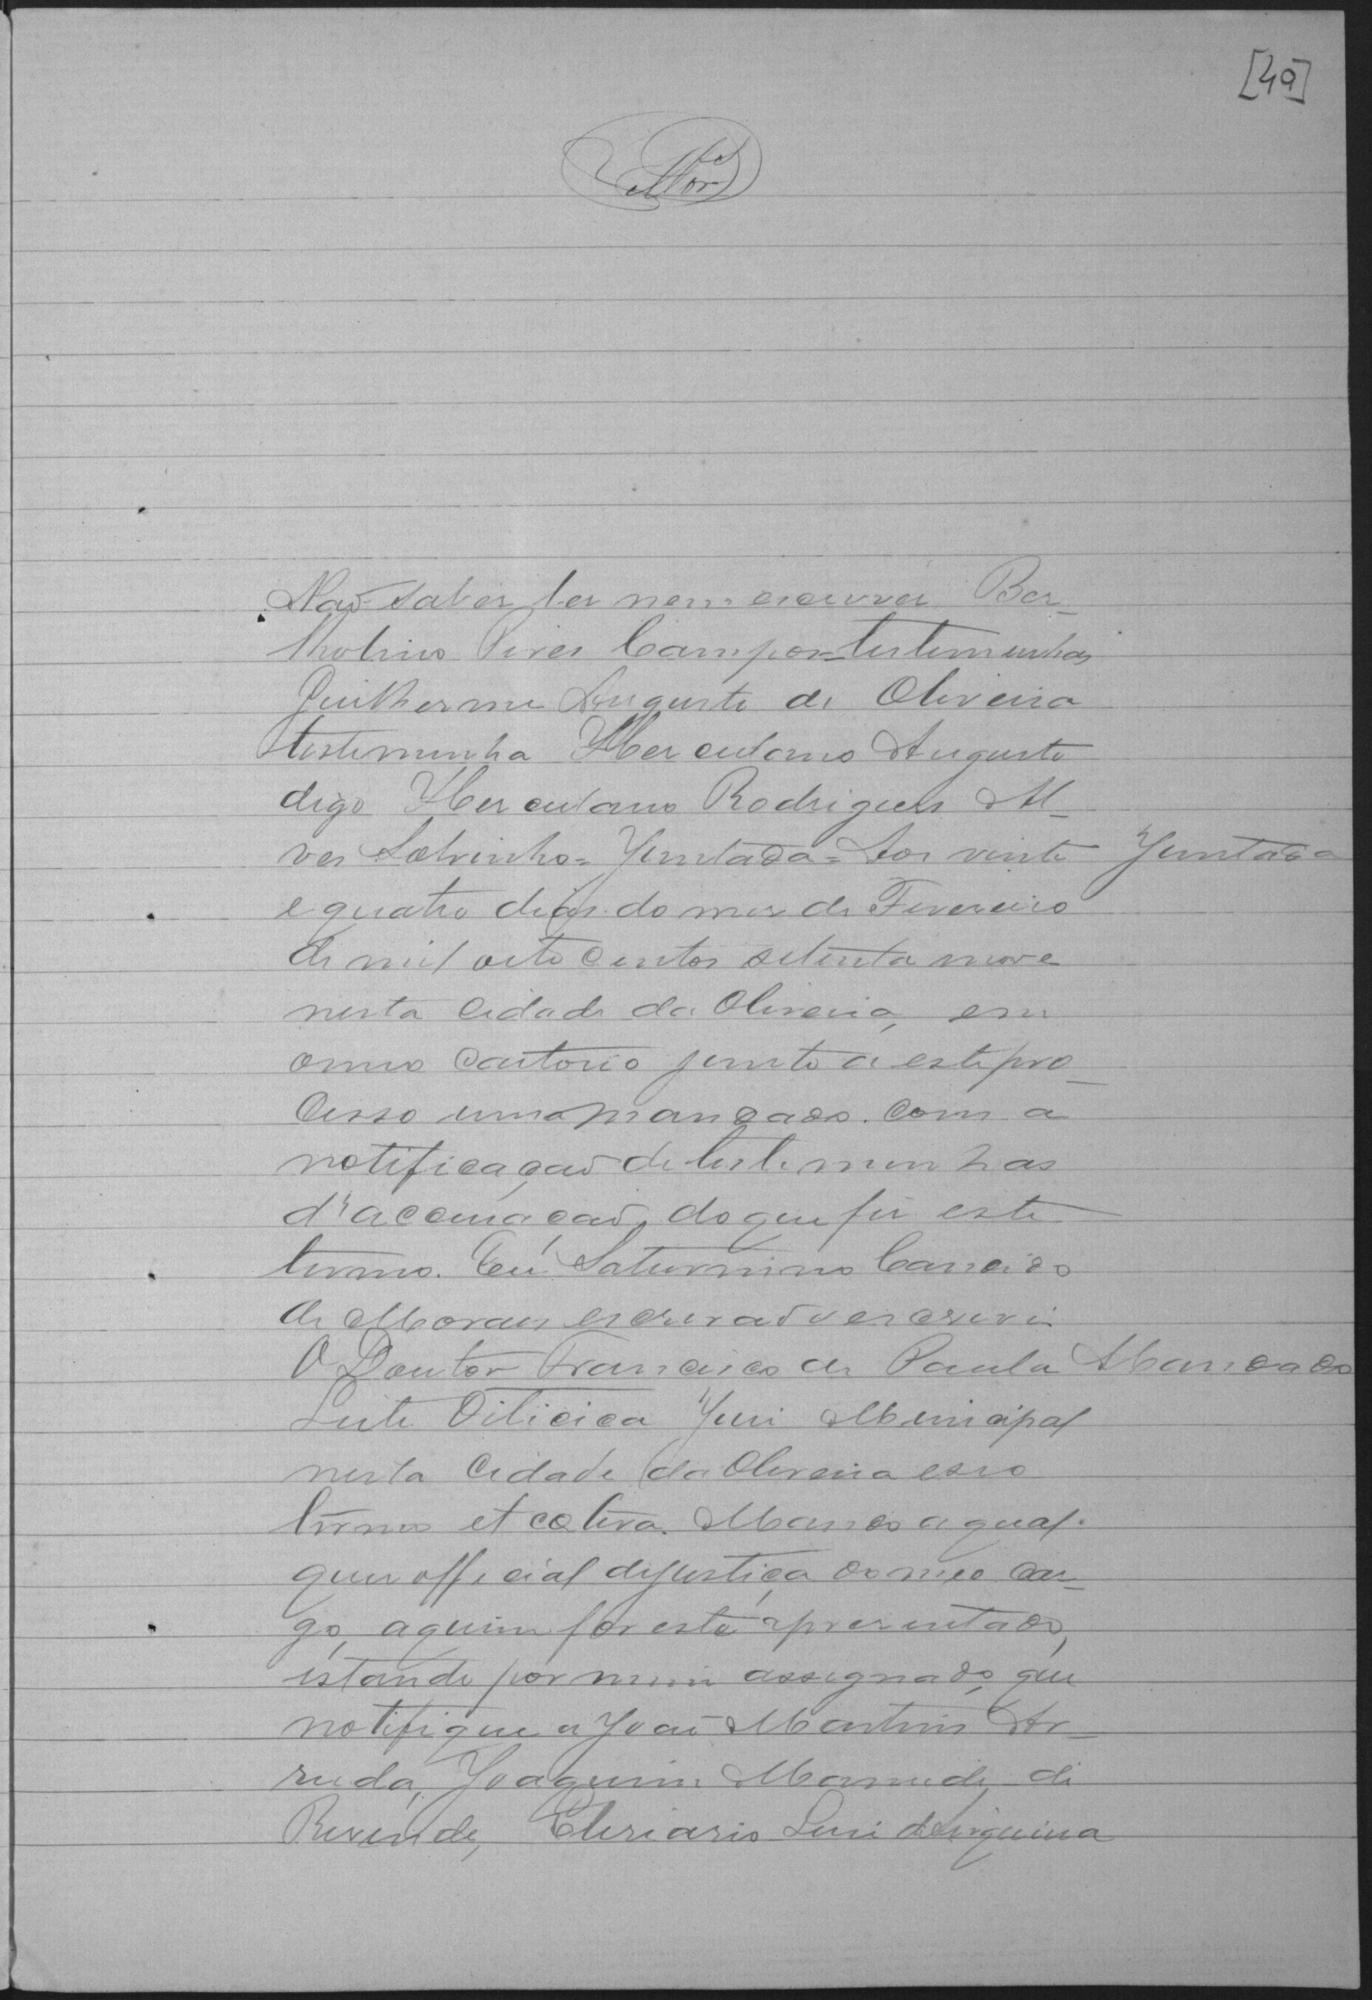 [49]
Não saber ler nem escrever Ber_
tholino Pires Campos testemunhas
Guilherme Augusto de Oliveira
testemunha Herculano Augusto
digo Herculano Rodrigues Al_
ves Sobrinho = Juntada = Aos vinte
Juntada
e quatro dias do mez de Fevereiro
de mil oito centos setenta nove
nesta Cidade da Oliveira, em
o meo Cartorio junto a este pro_
cesso um o mandado com a
notificação de testemunhas
d'acousação, do que fis este
termo. Eu Saturnino Cancido
de Moraes escrivão o escrevi.
O Doutor Francisco de Paula
Mandado
Leite Oiticica Juis Municipal
nesta Cidade da Oliveira e seo
termo et cetera. Mando a qual.
quer official de justiça do meo car_
go, a quem for este apresentado,
estando por mim assignado, que
notifique a João Martins Ar_
ruda, Joaquim Mamede de
Resende, Luis de